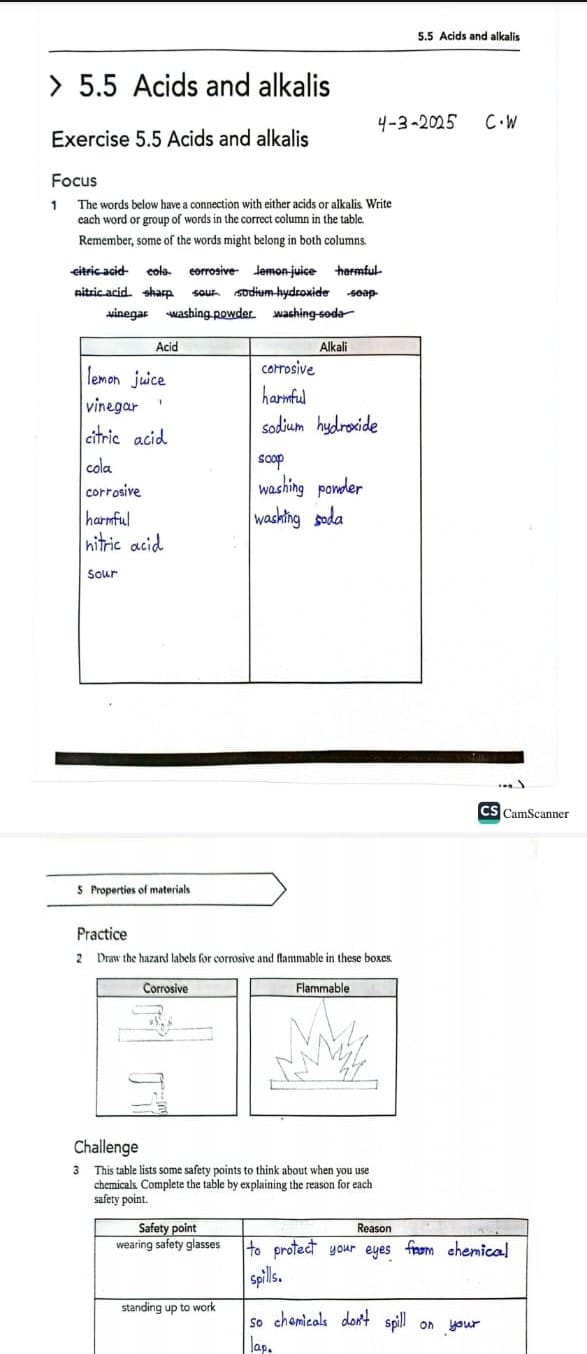 5.5 Acids and alkalis
> 5.5 Acids and alkalis
4-3-2025 C.W
Exercise 5.5 Acids and alkalis
Focus
1 The words below have a connection with either acids or alkalis. Write
each word or group of words in the correct column in the table.
Remember, some of the words might belong in both columns.
citric acid cola corrosive lemon juice harmful
nitric acid sharp sour sodium hydroxide soap
vinegar washing powder washing soda
Acid Alkali
lemon juice corrosive
vinegar harmful
citric acid sodium hydroxide
cola soap
corrosive washing powder
harmful washing soda
nitric acid
sour
CS CamScanner
5 Properties of materials
Practice
2 Draw the hazard labels for corrosive and flammable in these boxes.
Corrosive Flammable
Challenge
3 This table lists some safety points to think about when you use
chemicals. Complete the table by explaining the reason for each
safety point.
Safety point Reason
wearing safety glasses to protect your eyes from chemical
spills.
standing up to work so chemicals don't spill on your
lap.